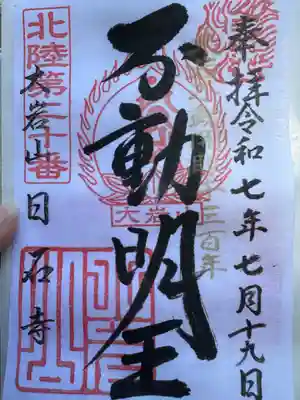 奉拝令和七年七月十九日
三百年
不動明王
大岩
北陸第三十番
大岩山日石寺